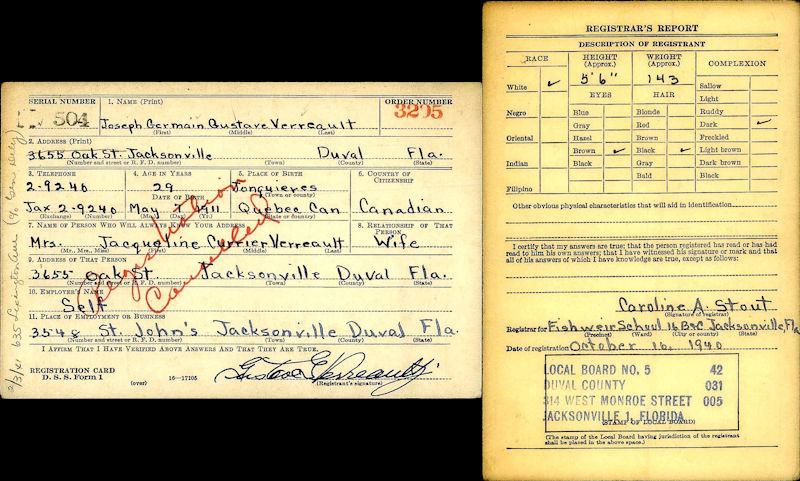 SERIAL NUMBER
1. NAME (Print)
ORDER NUMBER
504
Joseph Germain Gustave Verreault
3205
(First) (Middle) (Last)
2. ADDRESS (Print)
3655 Oak St. Jacksonville Duval Fla.
(Number and street or R. F. D. number) (Town) (County) (State)
3. TELEPHONE
4. AGE IN YEARS
5. PLACE OF BIRTH
6. COUNTRY OF CITIZENSHIP
2-9240
29
Jonquieres
(Town or county)
DATE OF BIRTH
Jax 2-9240
May 7 1911
Quebec Can
Canadian
(Exchange) (Number)
(Mo.) (Day) (Yr.)
(State or country)
7. NAME OF PERSON WHO WILL ALWAYS KNOW YOUR ADDRESS
8. RELATIONSHIP OF THAT PERSON
Mrs. Jacqueline Currier Verreault
Wife
(Mr., Mrs., Miss) (First) (Middle) (Last)
9. ADDRESS OF THAT PERSON
3655 Oak St. Jacksonville Duval Fla.
(Number and street or R. F. D. number) (Town) (County) (State)
10. EMPLOYER'S NAME
Self
11. PLACE OF EMPLOYMENT OR BUSINESS
3548 St. John's Jacksonville Duval Fla.
(Number and street or R. F. D. number) (Town) (County) (State)
I AFFIRM THAT I HAVE VERIFIED ABOVE ANSWERS AND THAT THEY ARE TRUE.
REGISTRATION CARD
D. S. S. Form 1
(over)
16—17105
Gustave Verreault
(Registrant's signature)
Registration
Cancelled
635 Lexington Ave
REGISTRAR'S REPORT
DESCRIPTION OF REGISTRANT
RACE
HEIGHT (Approx.)
WEIGHT (Approx.)
COMPLEXION
5'6"
143
White ✓
Sallow
EYES
HAIR
Light
Negro
Blue
Blonde
Ruddy
Gray
Red
Dark ✓
Oriental
Hazel
Brown
Freckled
Brown ✓
Black ✓
Light brown
Indian
Black
Gray
Dark brown
Bald
Black
Filipino
Other obvious physical characteristics that will aid in identification
I certify that my answers are true; that the person registered has read or has had
read to him his own answers; that I have witnessed his signature or mark and that
all of his answers of which I have knowledge are true, except as follows:
Caroline A. Stout
(Signature of registrar)
Registrar for Fishweir School 16 B&C Jacksonville, Fla
(Precinct) (Ward) (City or county) (State)
Date of registration October 16, 1940
LOCAL BOARD NO. 5 42
DUVAL COUNTY 031
314 WEST MONROE STREET 005
JACKSONVILLE 1, FLORIDA
(STAMP OF LOCAL BOARD)
(The stamp of the Local Board having jurisdiction of the registrant
shall be placed in the above space.)